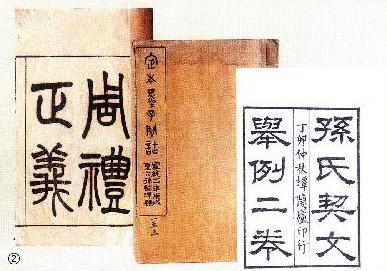 周禮
正義
定本墨子閒詁
孫氏契文
舉例二卷
丁卯仲秋蟫隱廬印行
②